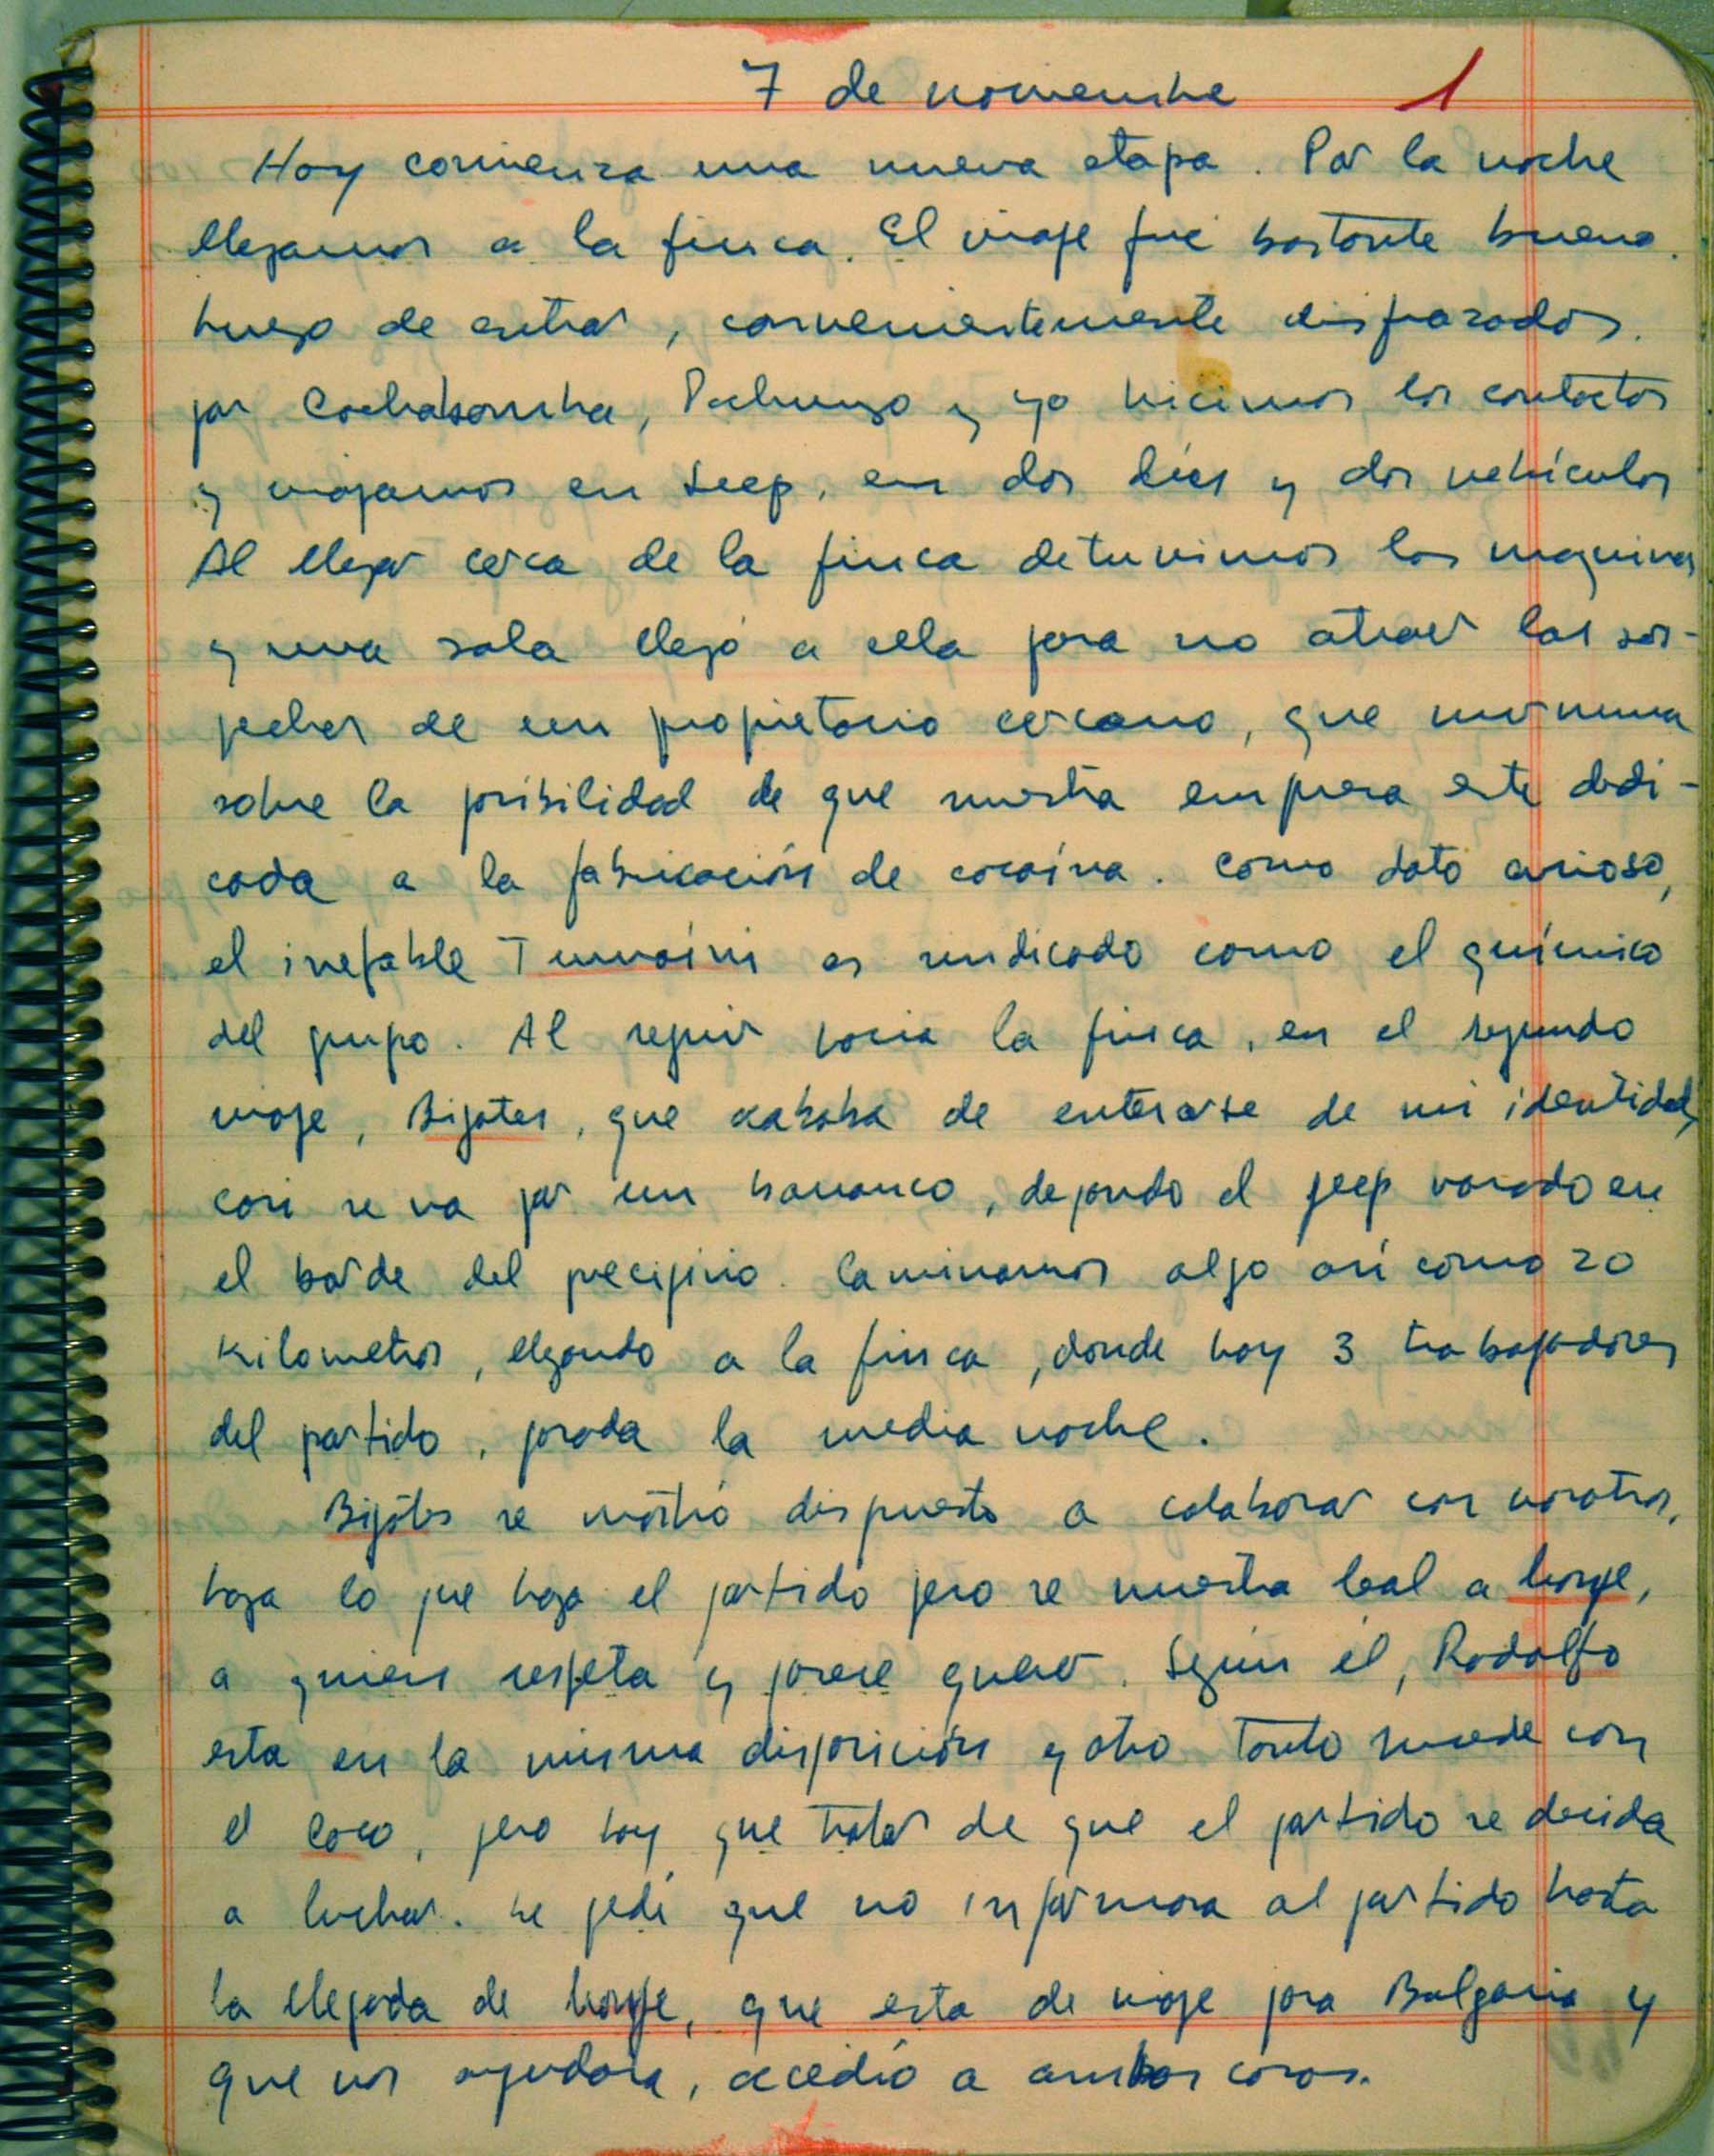 7 de noviembre 1
Hoy comienza una nueva etapa. Por la noche
llegamos a la finca. El viaje fué bastante bueno.
Luego de entrar, convenientemente disfrazados,
por Cochabamba, Pachungo y yo hicimos los contactos
y viajamos en Jeep, en dos días y dos vehículos
Al llegar cerca de la finca detuvimos las maquinas
y una sola llegó a ella para no atraer las sos-
pechas de un propietario cercano, que murmura
sobre la posibilidad de que nuestra empresa este dedi-
cada a la fabricación de cocaína. Como dato curioso,
el inefable Tumaini es sindicado como el químico
del grupo. Al seguir hacia la finca, en el segundo
viaje, Bigotes, que acababa de enterarse de mi identidad,
casi se va por un barranco, dejando el jeep varado en
el borde del precipicio. Caminamos algo así como 20
kilometros, llegando a la finca, donde hay 3 trabajadores
del partido, pasada la media noche.
Bigotes se mostró dispuesto a colaborar con nosotros,
haga lo que haga el partido pero se muestra leal a
a quien respeta y parece querer. Según él, Rodolfo
esta en la misma disposición y otro tanto sucede con
el Coco, pero hay que tratar de que el partido se decida
a luchar. Le pedí que no informara al partido hasta
la llegada de que esta de viaje para Bulgaria y
que nos ayudara, accedió a ambas cosas.